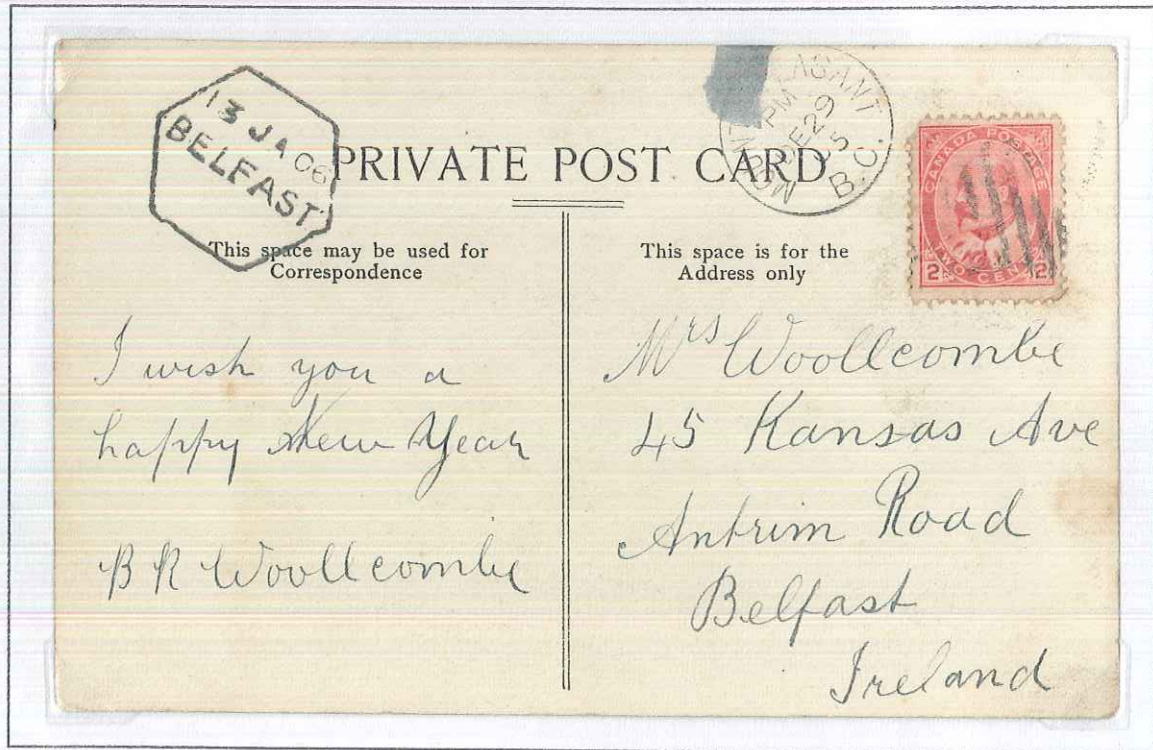 13 JA 06
BELFAST
MOUNT PLEASANT
PM
DE 29
05
B.C.
PRIVATE POST CARD
CANADA POSTAGE
2 TWO CENTS 2
This space may be used for
Correspondence
This space is for the
Address only
I wish you a
happy New Year
B R Woollcombe
Mrs Woollcombe
45 Kansas Ave
Antrim Road
Belfast
Ireland